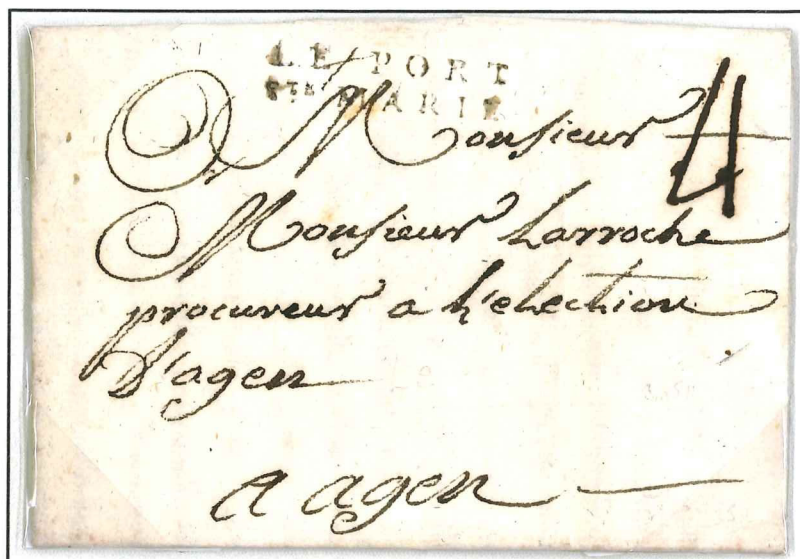 LE PORT
STE MARIE
A Monsieur
4
Monsieur Larroche
procureur a L'election
D'agen
a agen